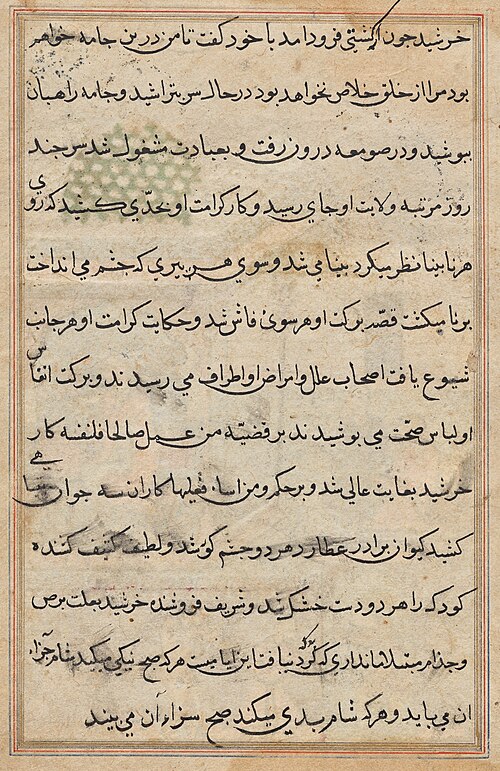 خرشید چون از کشتی فرود امد با خود کفت تا من درین جامه خواهم
بود مرا از خلق خلاص نخواهد بود در حال سر بتراشید و جامه راهبان
بپوشید و در صومعه درون رفت و بعبادت مشغول شد سر چند
روز مرتبه ولایت او جای رسید و کار کرامت او بحدّی کشید که روی
هر نابینا نظر میکرد بینا می شد و سوی هر پیری که چشم می انداخت
برنا میکشت قصّه برکت او هر سوی فاش شد و حکایت کرامت او هر جانب
شیوع یافت اصحاب علل و امراض از اطراف می رسیدند و برکت انفاس
او لباس صحّت می پوشیدند بر قضیّه من عمل صالحا فلنفسه کار
خرشید بغایت عالی شد و بر حکم ومن اساء فعلیها کاران سه جوان
کشید کیوان برادر عطارد هر دو چشم کور شد و لطیف کنیف کننده
کودک را هر دو دست خشک شد و شریف فروشنده خرشید بعلت برص
و جذام مبتلا ماند اری که گرد دنیا قتابن ایامست هر که صبح نیکی میکند شام جزاء
ان می یابد و هر که شام بدی میکند صبح سزاء آن می بیند